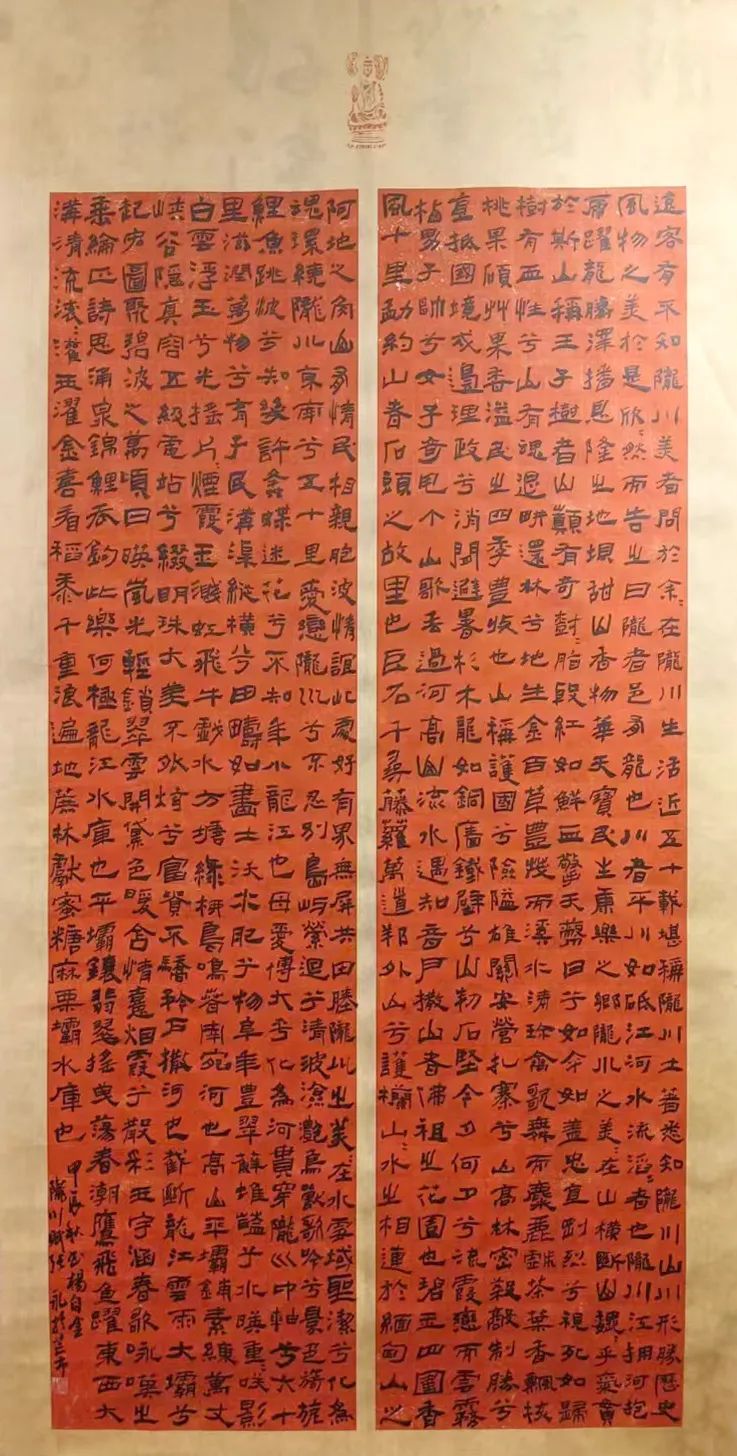 遠客有不知隴川美者問於余々在隴川生活近五十載堪稱隴川土著悉知隴川山川形勝歷史
風物之美於是欣々然而告之曰隴者邑有龍也川者平川如砥江河水流滔々者也隴川江擁河抱
虎躍龍騰澤播恩隆之地壩甜山香物華天寶民生康樂之鄉隴川之美在山橫斷山巍乎氣貫
於斯山稱王子樹者山巔有奇樹脂段紅如鮮血擎天蔽日兮如傘如蓋忠直剛烈兮視死如歸
樹有血性兮山有魂退畊還林兮地生金百草豐茂而溪水清珍禽歌舞而麋鹿戲茶葉香飄核
桃果碩艸果香溢民之四季豐收也山稱護國兮險隘雄關安營扎寨兮山高林密殺敵制勝兮
直抵國境戍邊理政兮消閒避暑杉木龍如銅牆鐵壁兮山勒石堅今夕何夕兮流霞戀而雲霧
枯男子帥兮女子奇甩个山歌丟過河高山流水遇知音戶撒山者佛祖之花園也碧玉四圍香
風十里勐約山者石頭之故里也巨石千尋藤蘿萬道邦外山兮護欄山々水之相連於緬甸山之
阿地之角山有情民相親胞波情誼此處好有界無屏共田塍隴川之美在水雪域聖潔兮化為
魂環繞隴川京南兮五十里愛戀隴川兮不忍別島嶼縈迴兮清波瀲灧鳥獸歌吟兮景色旖旎
鯉魚跳波兮知緣許蝶迷花兮不知年小龍江也母愛傳大兮化為河貫穿隴川中軸兮六十
里滋潤萬物兮育子民溝渠縱橫兮田疇如畫土沃水肥兮物阜年豐翠蘚堆兮水暎重々咲影
白雲浮玉兮光搖片々煙霞玉濺虹飛牛戲水方塘綠柳鳥鳴春南宛河也高山平壩鋪素練萬丈
峽谷隱真容五級電站兮綴明珠大美不外炫兮富貧不驕矜戶撒河也截斷龍江雲雨大壩兮
起宏圖聚碧波之萬頃日暎嵐光輕鎖翠雲開黛色暖含情臺烟霞兮散彩玉宇涵春歌咏嘆之
乘綸匹詩思涌泉錦鯉吞鉤此樂何極龍江水庫也平壩鑲翡翠搖曳蕩春潮鷹飛魚躍東西大
溝清流滾々灌玉濯金喜看稻黍千重浪遍地蔗林獻蜜糖麻栗壩水庫也
甲辰秋書楊自全
隴川賦張永於芒市